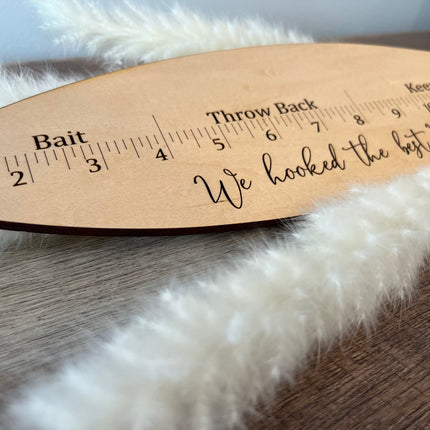 Bait Throw Back Kee
2 3 4 5 6 7 8 9
We hooked the best